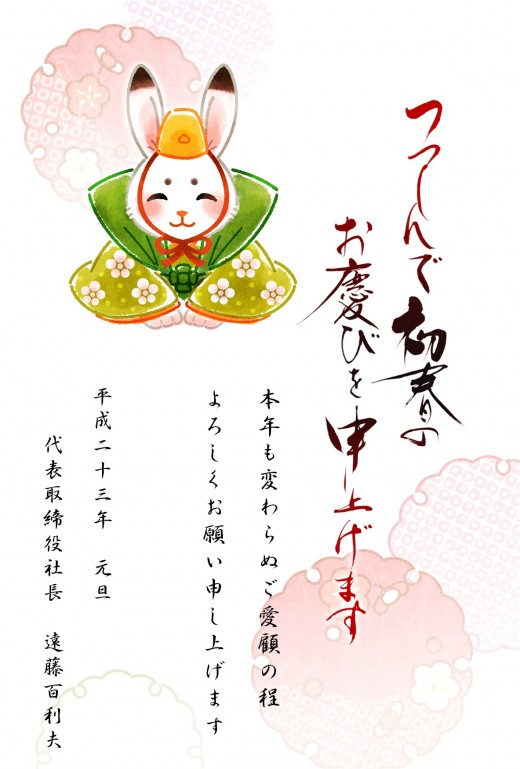 つつしんで初春の
お慶びを申し上げます
本年も変わらぬご愛顧の程
よろしくお願い申し上げます
平成二十三年　元旦
代表取締役社長　遠藤百利夫